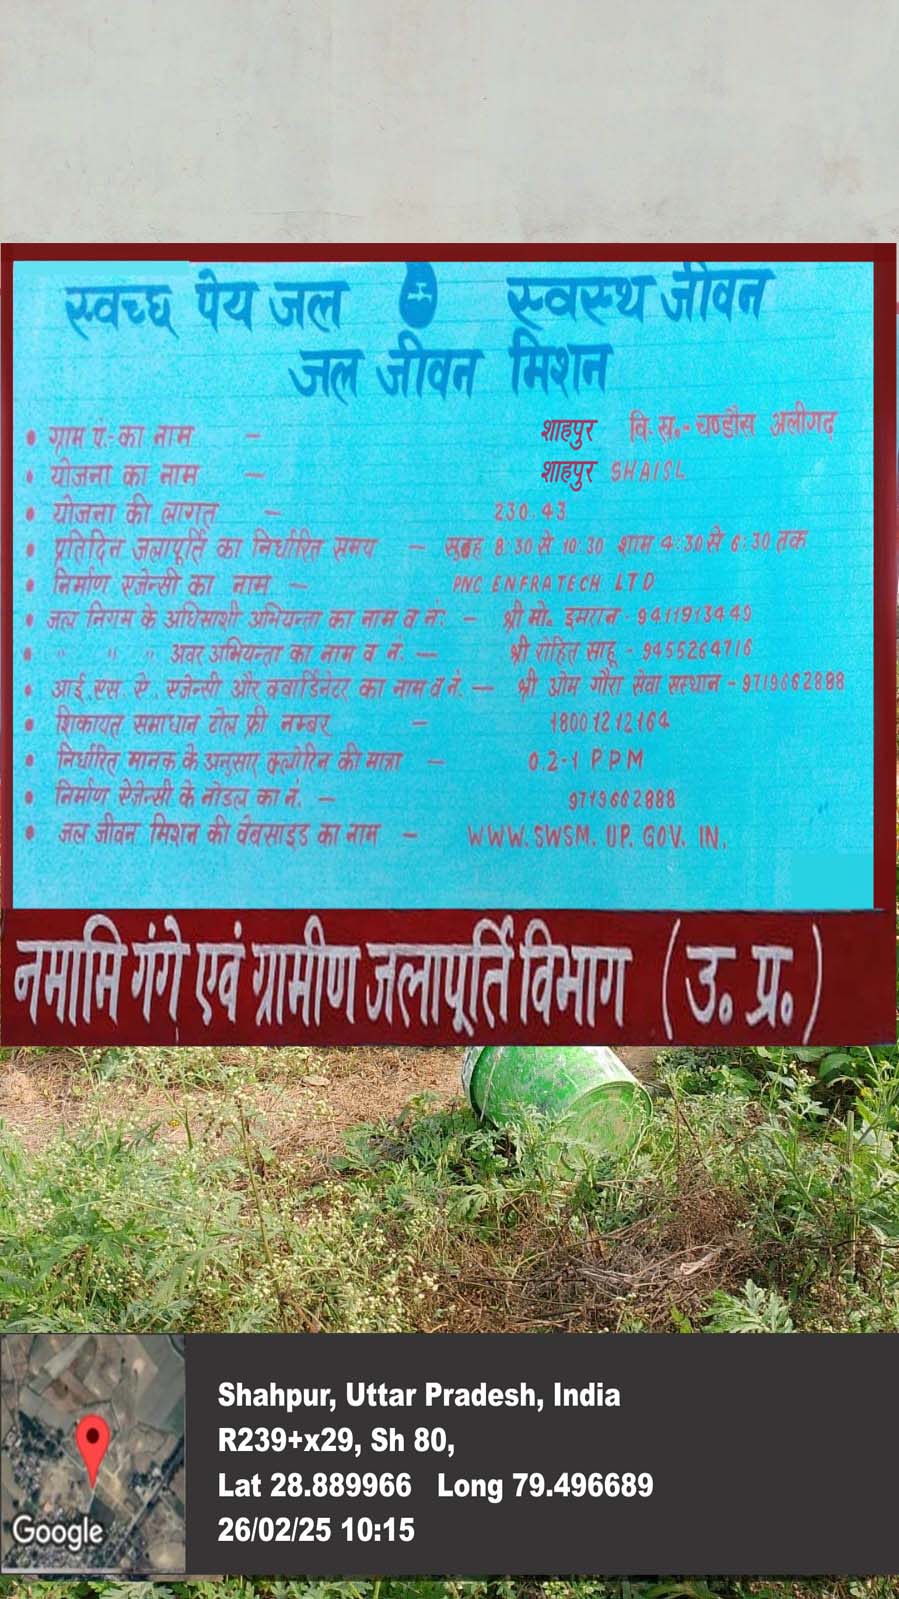 स्वच्छ पेय जल स्वस्थ जीवन
जल जीवन मिशन
• ग्राम पं.-का नाम – शाहपुर वि. ख.- चण्डौस अलीगढ़
• योजना का नाम – शाहपुर SHAISL
• योजना की लागत – 230.43
• प्रतिदिन जलापूर्ति का निर्धारित समय – सुबह 8:30 से 10:30 शाम 4:30 से 6:30 तक
• निर्माण एजेन्सी का नाम – PNC ENFRATECH LTD
• जल निगम के अधिसाशी अभियन्ता का नाम व नं. – श्री मो. इमरान - 9411913449
• " " " अवर अभियन्ता का नाम व नं. – श्री रोहित साहू - 9455264716
• आई.एस. ए. एजेन्सी और क्वार्डिनेटर का नाम व नं. – श्री ओम गौरा सेवा सस्थान - 9719662888
• शिकायत समाधान टोल फ्री नम्बर – 18001212164
• निर्धारित मानक के अनुसार क्लोरिन की मात्रा – 0.2-1 PPM
• निर्माण ऐजेन्सी के नोडल का नं. – 9719662888
• जल जीवन मिशन की वेबसाइड का नाम – WWW.SWSM.UP.GOV.IN.
नमामि गंगे एवं ग्रामीण जलापूर्ति विभाग (उ. प्र.)
Shahpur, Uttar Pradesh, India
R239+x29, Sh 80,
Lat 28.889966 Long 79.496689
26/02/25 10:15
Google